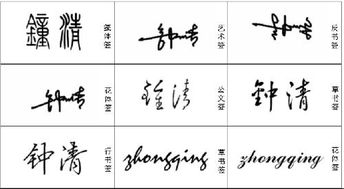 鐘清
繁体签
钟清
艺术签
钟清
反书签
钟清
花体签
钟清
公文签
钟清
草书签
钟清
行书签
zhongqing
草书签
zhongqing
花体签